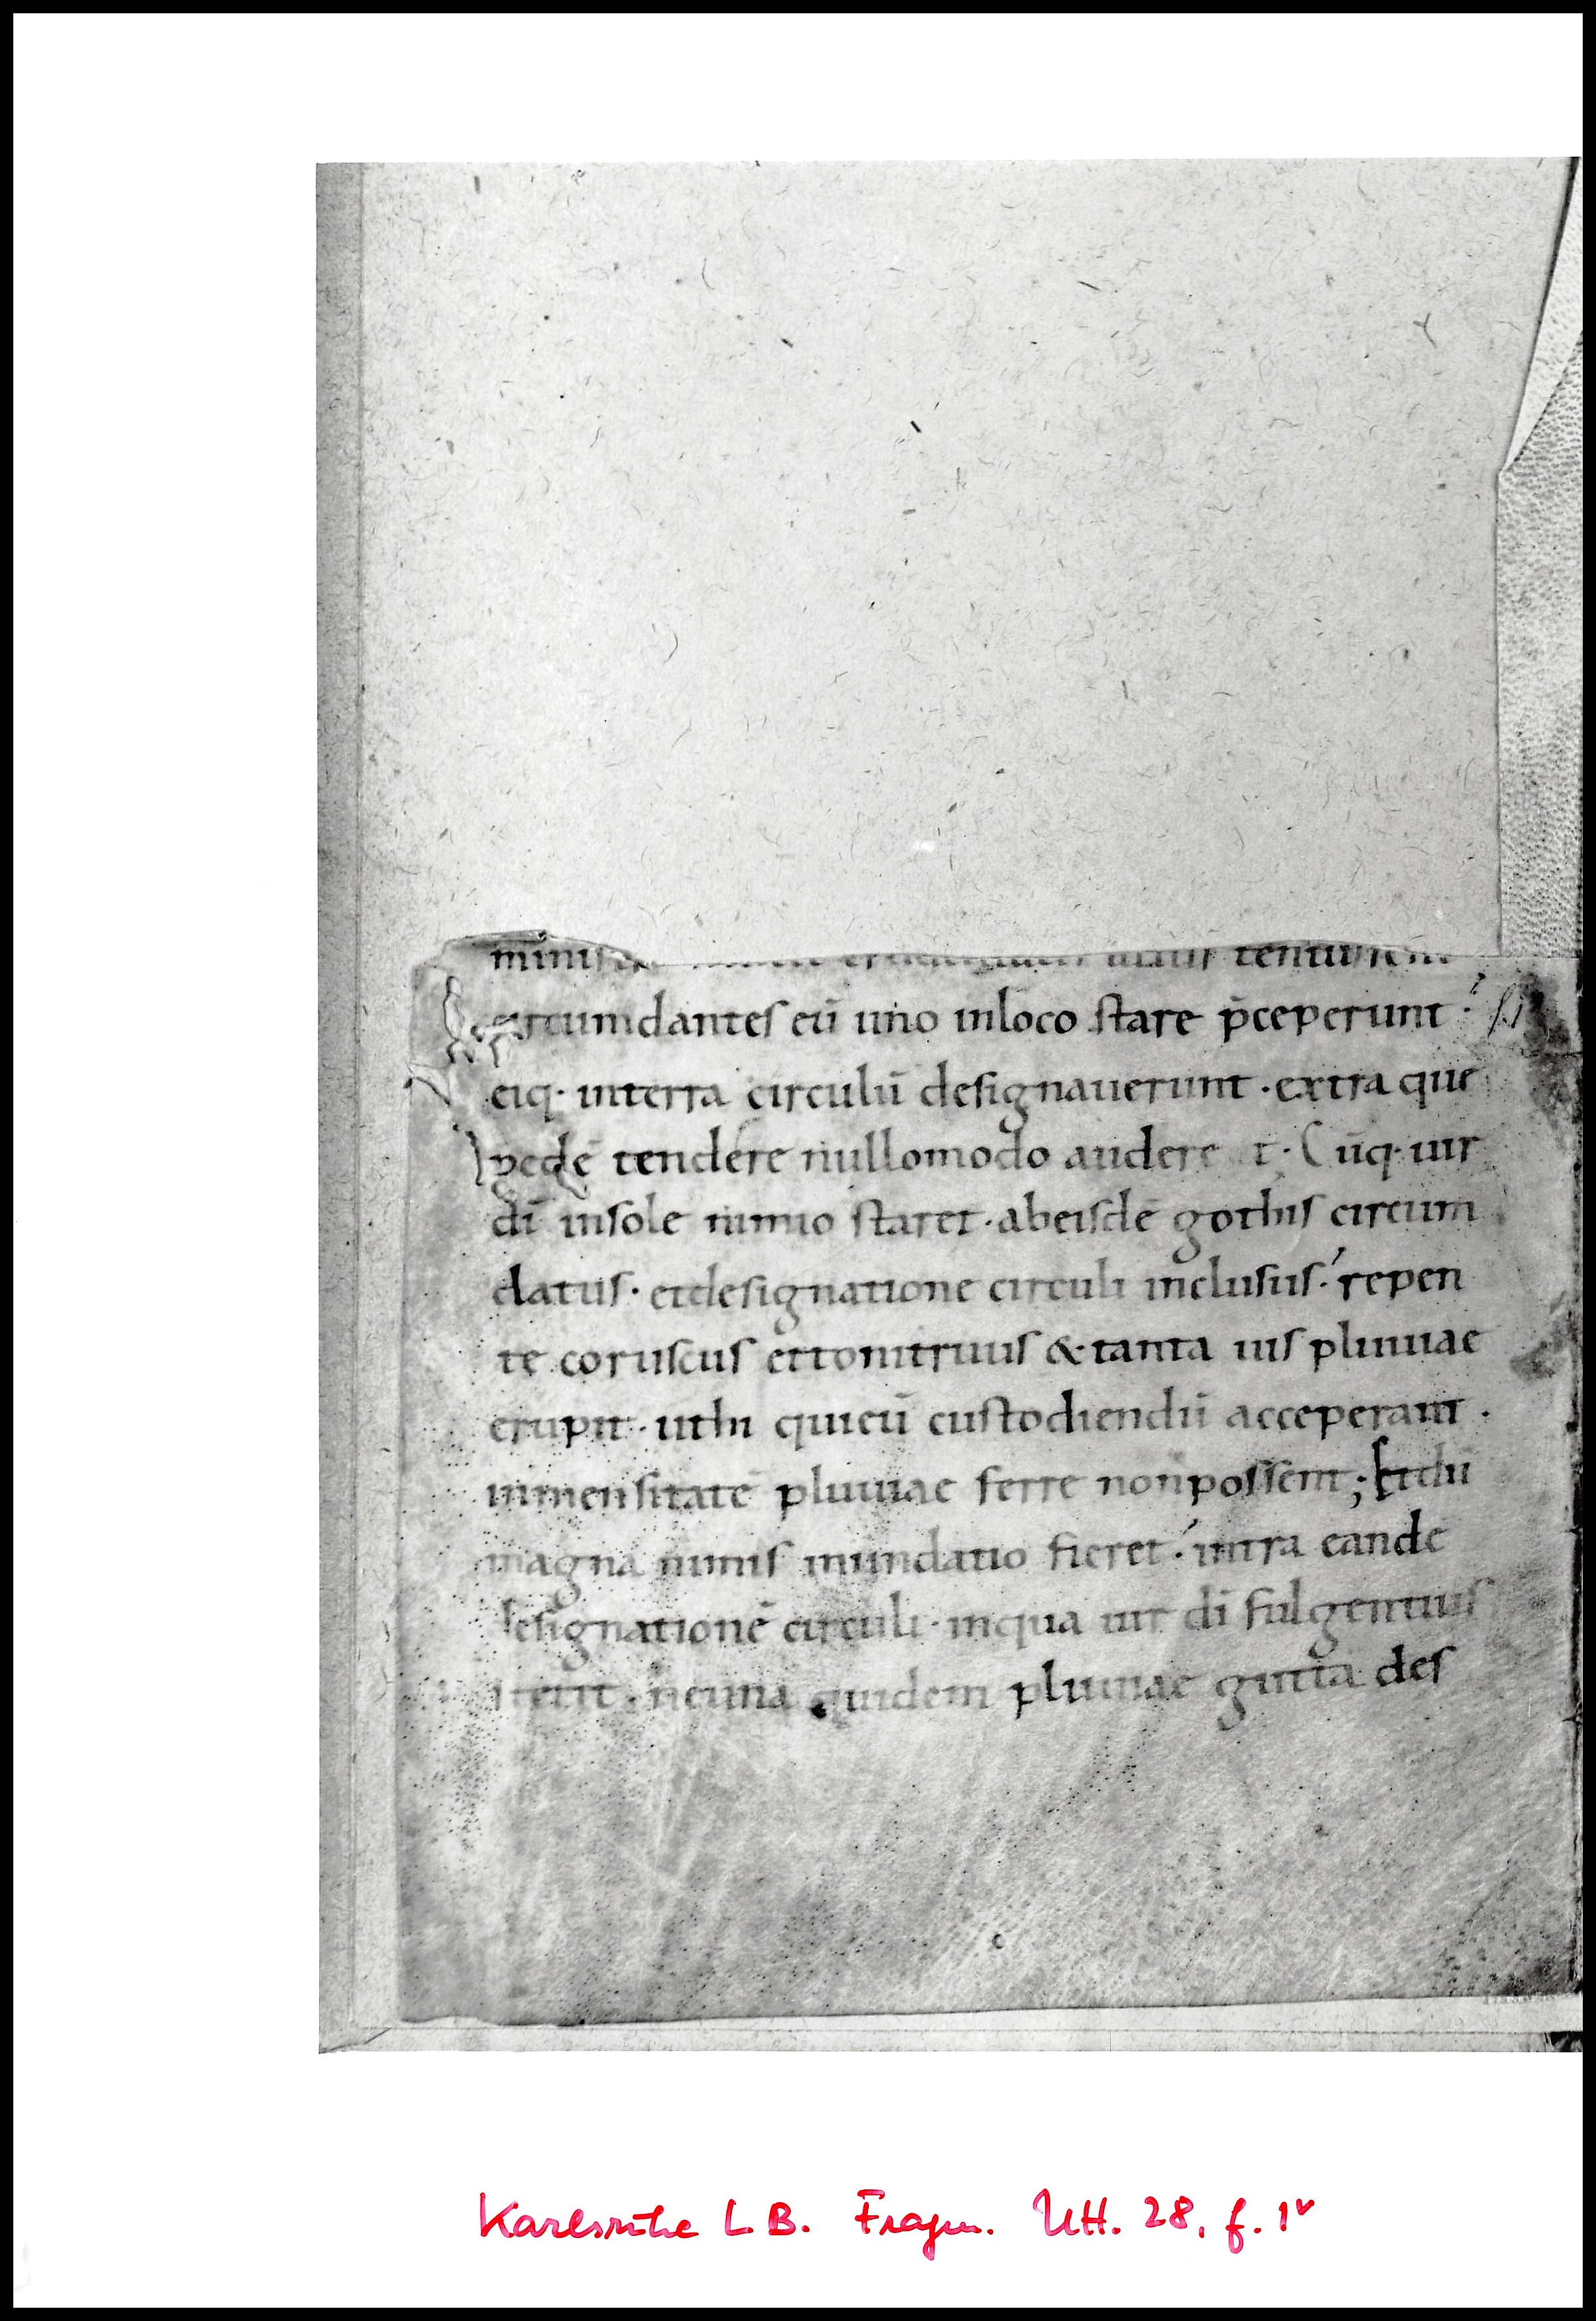 minis tentus
circumdantes eū uno inloco stare p̄ceperunt·
eiq· interra circulū designauerunt · extra que
pedē tendere nullomodo audere t· Cūq· uir
dī insole nimio staret · abeisdē gothis circum
datus · etdesignatione circuli inclusus · repen
te coruscus ettonitruus & tanta uis pluuiae
erupit · uthi quieū custodiendū acceperant ·
inmensitatē pluuiae ferre nonpossent ; Etdū
magna nimis inundatio fieret · intra eandē
designationē circuli · inqua uir dī fulgentius
stetit · neuna quidem pluuiae gutta des
Karlsruhe L.B. Fragm. UH. 28, f. 1v